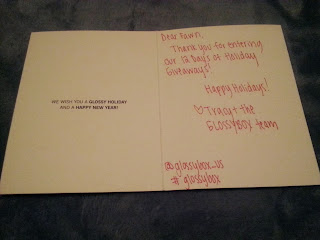 WE WISH YOU A GLOSSY HOLIDAY
AND A HAPPY NEW YEAR!
Dear Fawn,
Thank you for entering
our 12 Days of Holiday
Giveaways!
Happy Holidays!
♡ Tracy + the
GLOSSYBOX team
@glossybox_us
# glossybox